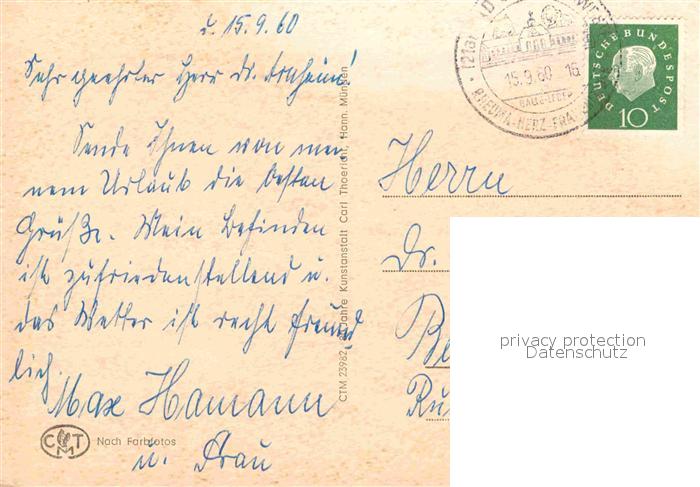 d. 15.9.60
Sehr geehrter Herr Dr.
Sende Ihnen von mei
nem Urlaub die besten
Grüße. Mein Befinden
ist zufriedenstellend u.
das Wetter ist recht freund
lich.
Max Hamann
u. Frau
CTM
Nach Farbfotos
CTM 23982 Jahre Kunstanstalt Carl Thoericht, Hann. Münden
15.9.60 16
RHEUMA-HERZ-FRA
DEUTSCHE BUNDESPOST
10
Herrn
Dr.
privacy protection
Datenschutz